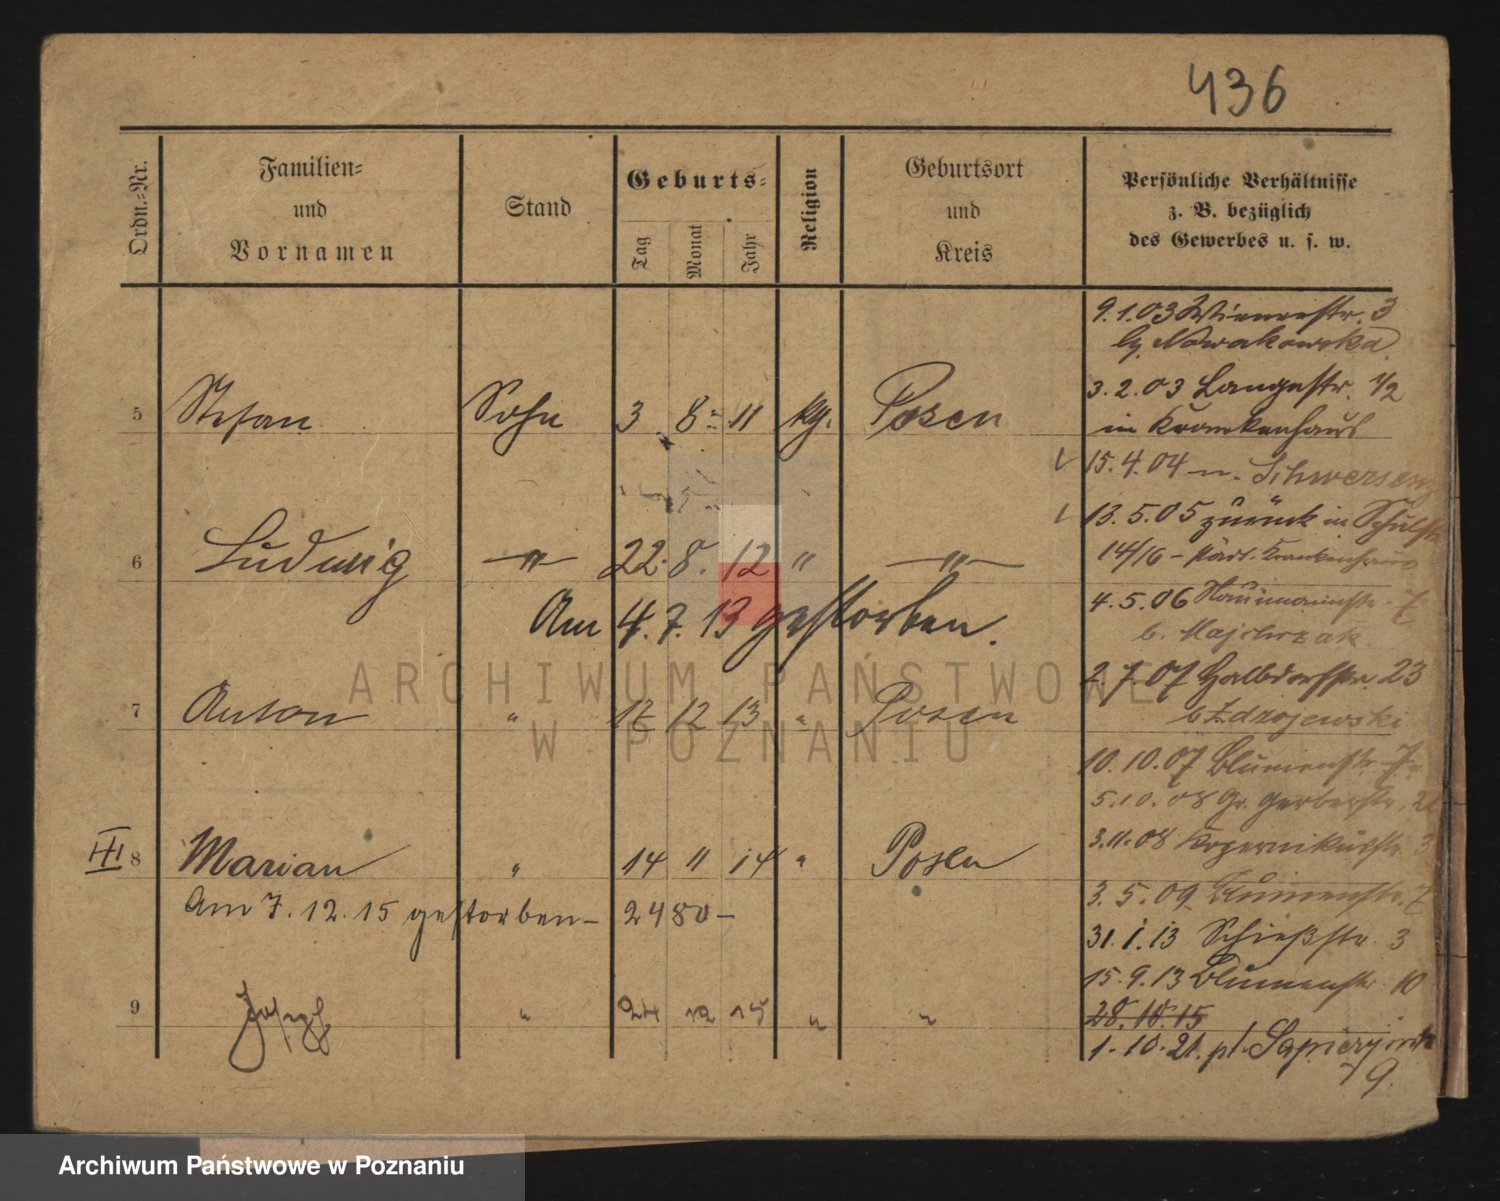 436
Ordn.-Nr.
Familien-
und
Vornamen
Stand
Geburts-
Tag
Monat
Jahr
Religion
Geburtsort
und
Kreis
Persönliche Verhältnisse
z. B. bezüglich
des Gewerbes u. s. w.
5 Stefan Sohn 3 8 11 kth. Posen
6 Ludwig " 22. 8. 12 " "
Am 4. 7. 13 gestorben.
7 Anton " 12 12 13 " Posen
III 8 Marian " 14 " 14 " Posen
Am 7. 12. 15 gestorben – 2480 –
9 Joseph " 24 12 15 " "
9.1.03 Wienerstr. 3
b/ Nowakowska
3. 2. 03 Langestr. 1/2
in Krankenhaus
15. 4. 04 n. Schwersenz
13. 5. 05 zurück in Schulstr
14/16 – städt. Krankenhaus
4. 5. 06 Naumannstr. 7
b. Majchrzak
2. 7. 07 Halbdorfstr. 23
b Zdrojewski
10. 10. 07 Blumenstr. 7
5. 10. 08 Gr. Gerberstr.
3. 11. 08 Kopernikusstr. 3
3. 5. 09 Blumenstr. 7
31. 1. 13 Schießstr. 3
15. 9. 13 Blumenstr. 10
28. 10. 15
1. 10. 21. pl. Sapieżyński
9.
ARCHIWUM PAŃSTWOWE
W POZNANIU
Archiwum Państwowe w Poznaniu